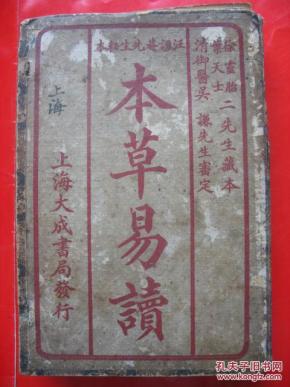 汪訒菴先生秘本
徐靈胎
葉天士
二先生藏本
清御醫吳謙先生審定
本草易讀
上海大成書局發行
上海
孔夫子旧书网